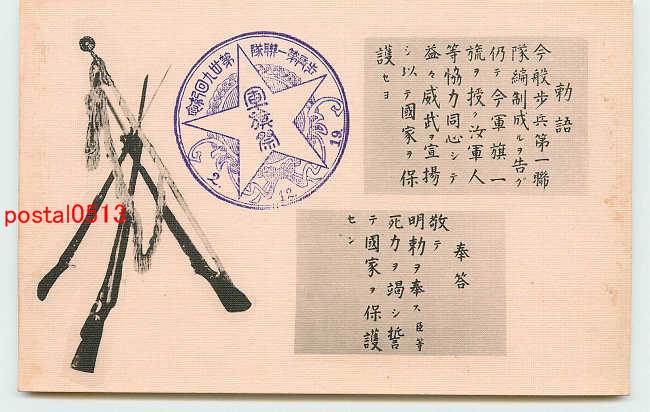 勅語
今般歩兵第一聯
隊編制成ルヲ告グ
仍テ今軍旗一
旒ヲ授ク汝軍人
等協力同心シテ
益々威武ヲ宣揚
シ以テ國家ヲ保
護セヨ
奉答
敬テ
明勅ヲ奉ス臣等
死力ヲ竭シ誓
テ國家ヲ保護
セン
歩兵第一聯隊
第卅九回
軍旗祭
2. 12. 19
postal0513